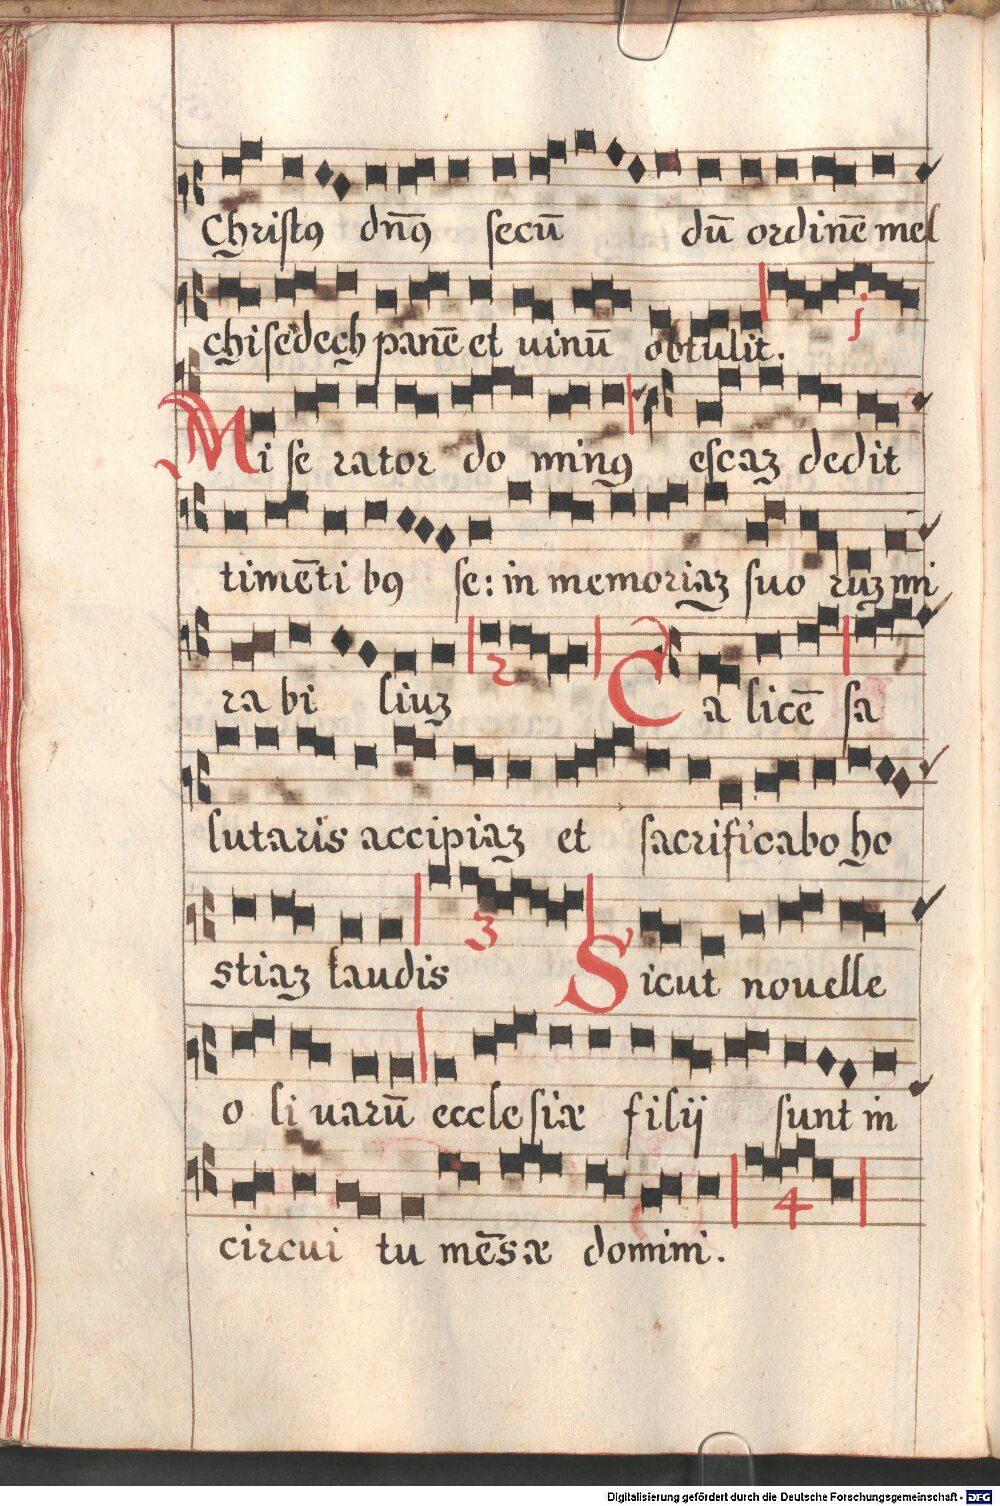 Christꝰ dn̄ꝰ secū dū ordinē mel
chisedech panē et uinū obtulit.
j
Mi se rator do minꝰ escaʒ dedit
timēti bꝰ se: in memoriaʒ suo ruʒ mi
ra bi liuʒ 2 Ca licē sa
lutaris accipiaʒ et sacrificabo ho
stiaʒ laudis 3 Sicut nouelle
o li uarū ecclesiæ filij sunt in
circui tu mēsæ domini. 4
Digitalisierung gefördert durch die Deutsche Forschungsgemeinschaft - DFG